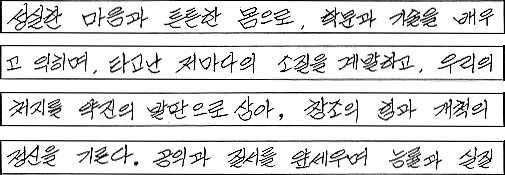 성실한 마음과 튼튼한 몸으로, 학문과 기술을 배우
고 익히며, 타고난 저마다의 소질을 계발하고, 우리의
처지를 약진의 발판으로 삼아, 창조의 힘과 개척의
정신을 기른다. 공익과 질서를 앞세우며 능률과 실질